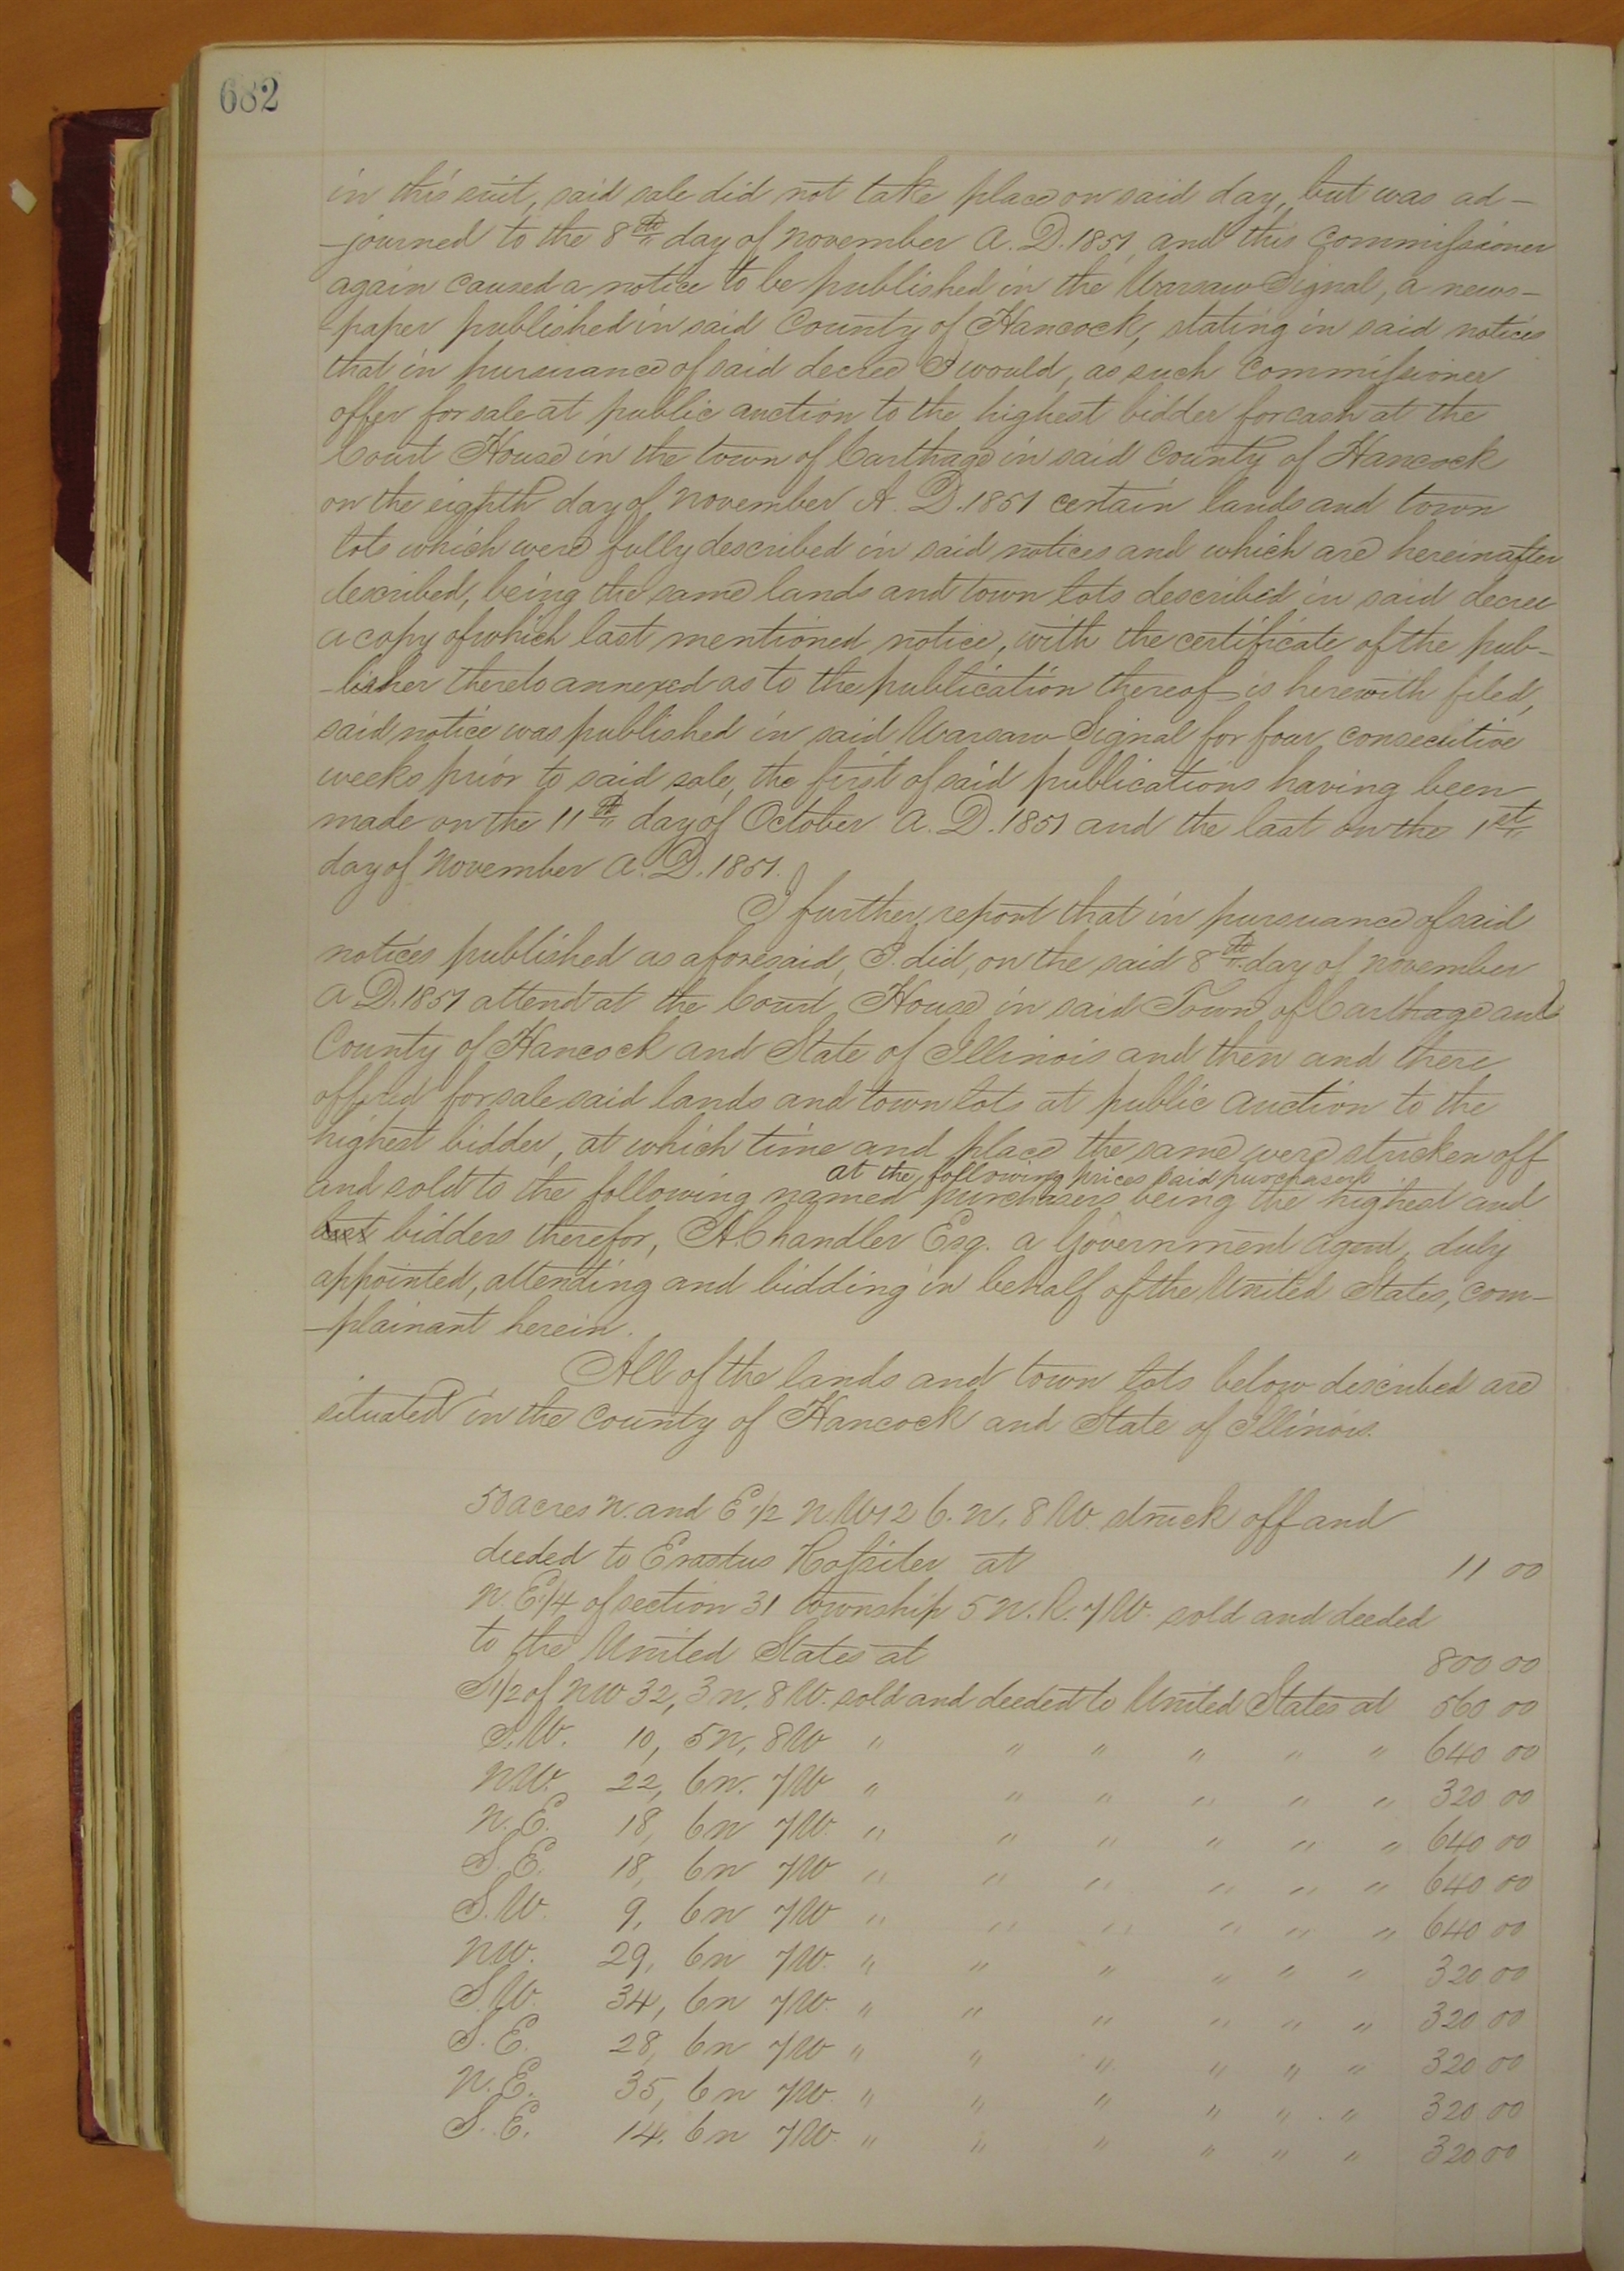 682
in this suit, said sale did not take place on said day, but was ad-
-journed to the 8th day of November A.D. 1851, and this Commissioner
again caused a notice to be published in the Warsaw Signal, a news-
-paper published in said County of Hancock, stating in said notices
that in pursuance of said decree I would, as such Commissioner
offer for sale at public auction to the highest bidder for cash at the
Court House in the town of Carthage in said County of Hancock
on the eighth day of November A. D. 1851 certain lands and town
lots which were fully described in said notices and which are hereinafter
described, being the same lands and town lots described in said decree
a copy of which last mentioned notice, with the certificate of the pub-
-lisher thereto annexed as to the publication thereof is herewith filed,
said notice was published in said Warsaw Signal for four consecutive
weeks prior to said sale, the first of said publications having been
made on the 11th day of October A.D. 1851 and the last on the 1st
day of November A.D. 1851.
I further report that in pursuance of said
notices published as aforesaid, I did, on the said 8th day of November
A D. 1851 attend at the Court House in said Town of Carthage and
County of Hancock and State of Illinois and then and there
offered for sale said lands and town lots at public auction to the
highest bidder, at which time and place the same were stricken off
at the following prices said purchasers
and sold to the following named purchasers being the highest and
best bidders therefor, A. Chandler Esq. a Government agent, duly
appointed, attending and bidding in behalf of the United States, com-
-plainant herein.
All of the lands and town lots below described are
situated in the County of Hancock and State of Illinois.
50 acres N. and E 1/2 N.W 2 6. N. 8 W. struck off and
deeded to Erastus Rossiter at 11 00
N. E. 1/4 of section 31 township 5 N. R. 7 W. sold and deeded
to the United States at 800 00
S 1/2 of NW 32, 3 N. 8 W. sold and deeded to United States at 560 00
S.W. 10, 5 N, 8 W " " " " " " 640 00
N.W. 22, 6 N. 7 W " " " " " " 320 00
N. E. 18, 6 N 7 W. " " " " " " 640 00
S. E. 18, 6 N 7 W " " " " " " 640 00
S. W. 9, 6 N 7 W " " " " " " 640 00
N.W. 29, 6 N 7 W. " " " " " " 320 00
S.W. 34, 6 N 7 W. " " " " " " 320 00
S. E. 28, 6 N 7 W " " " " " " 320 00
N. E. 35, 6 N 7 W. " " " " " " 320 00
S. E. 14. 6 N 7 W. " " " " " " 320 00